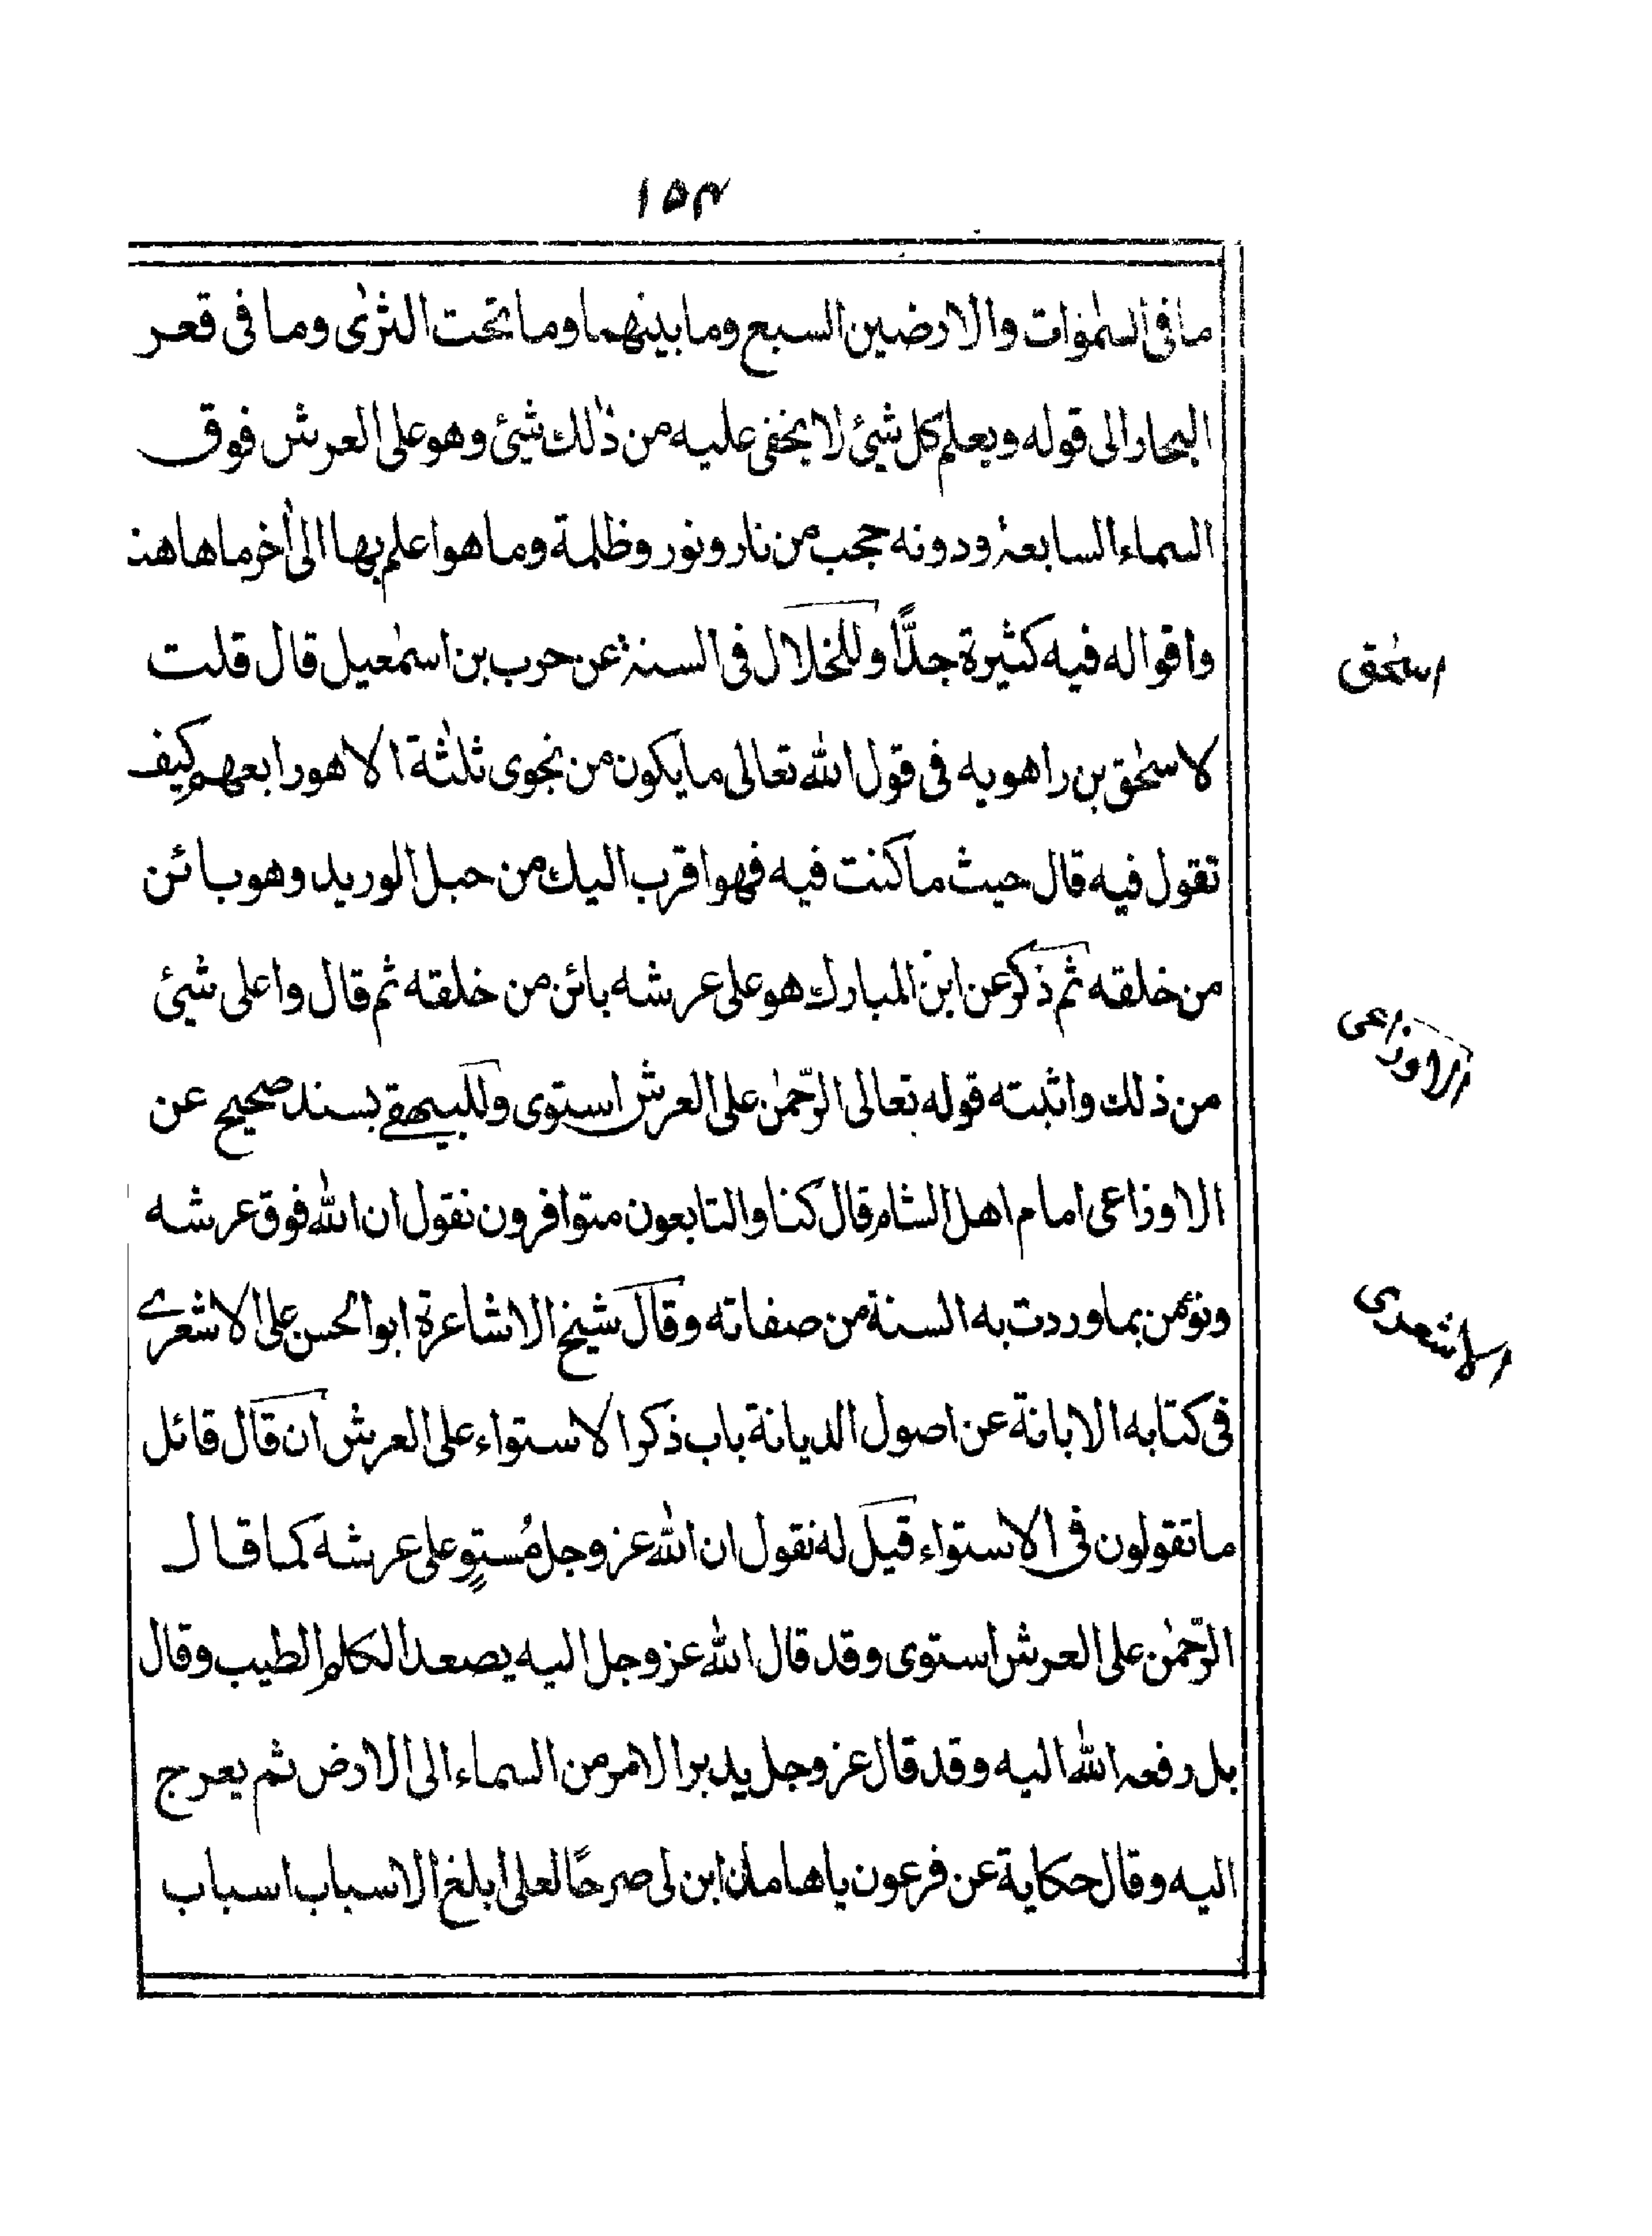 ۱۵۳
ما فى السمٰوٰات والارضين السبع وما بينهما وما تحت الثرٰى وما فى قعر
البحار الى قوله ويعلم كل شيئ لا يخفى عليه من ذٰلك شيئ وهو على العرش فوق
السماء السابعة ودونه حجب من نار ونور وظلمة وما هو اعلم بها الىٰ اٰخر ما هاهنا
واقواله فيه كثيرة جدًّا وللخلال فى السنة عن حرب بن اسمٰعيل قال قلت
اسحٰق
لاسحٰق بن راهويه فى قول الله تعالى ما يكون من نجوى ثلٰثة الا هو رابعهم كيف
تقول فيه قال حيث ما كنت فيه فهو اقرب اليك من حبل الوريد وهو بائن
من خلقه ثم ذكر عن ابن المبارك هو على عرشه بائن من خلقه ثم قال واعلى شيئ
الاوزاعى
من ذلك واثبته قوله تعالى الرّحمٰن على العرش استوى وللبيهقے بسند صحيح عن
الاوزاعى امام اهل الشام قال كنا والتابعون متوافرون نقول ان الله فوق عرشه
ونؤمن بما وردت به السنة من صفاته وقال شيخ الاشاعرة ابو الحسن على الاشعرے
الاشعرى
فى كتابه الابانة عن اصول الديانة باب ذكر الاستواء على العرش ان قال قائل
ما تقولون فى الاستواء قيل له نقول ان الله عز وجل مُستوٍ على عرشه كما قال
الرّحمٰن على العرش استوى وقد قال الله عز وجل اليه يصعد الكلم الطيب وقال
بل رفعه الله اليه وقد قال عز وجل يدبر الامر من السماء الى الارض ثم يعرج
اليه وقال حكاية عن فرعون يا هامان ابن لى صرحًا لعلى ابلغ الاسباب اسباب